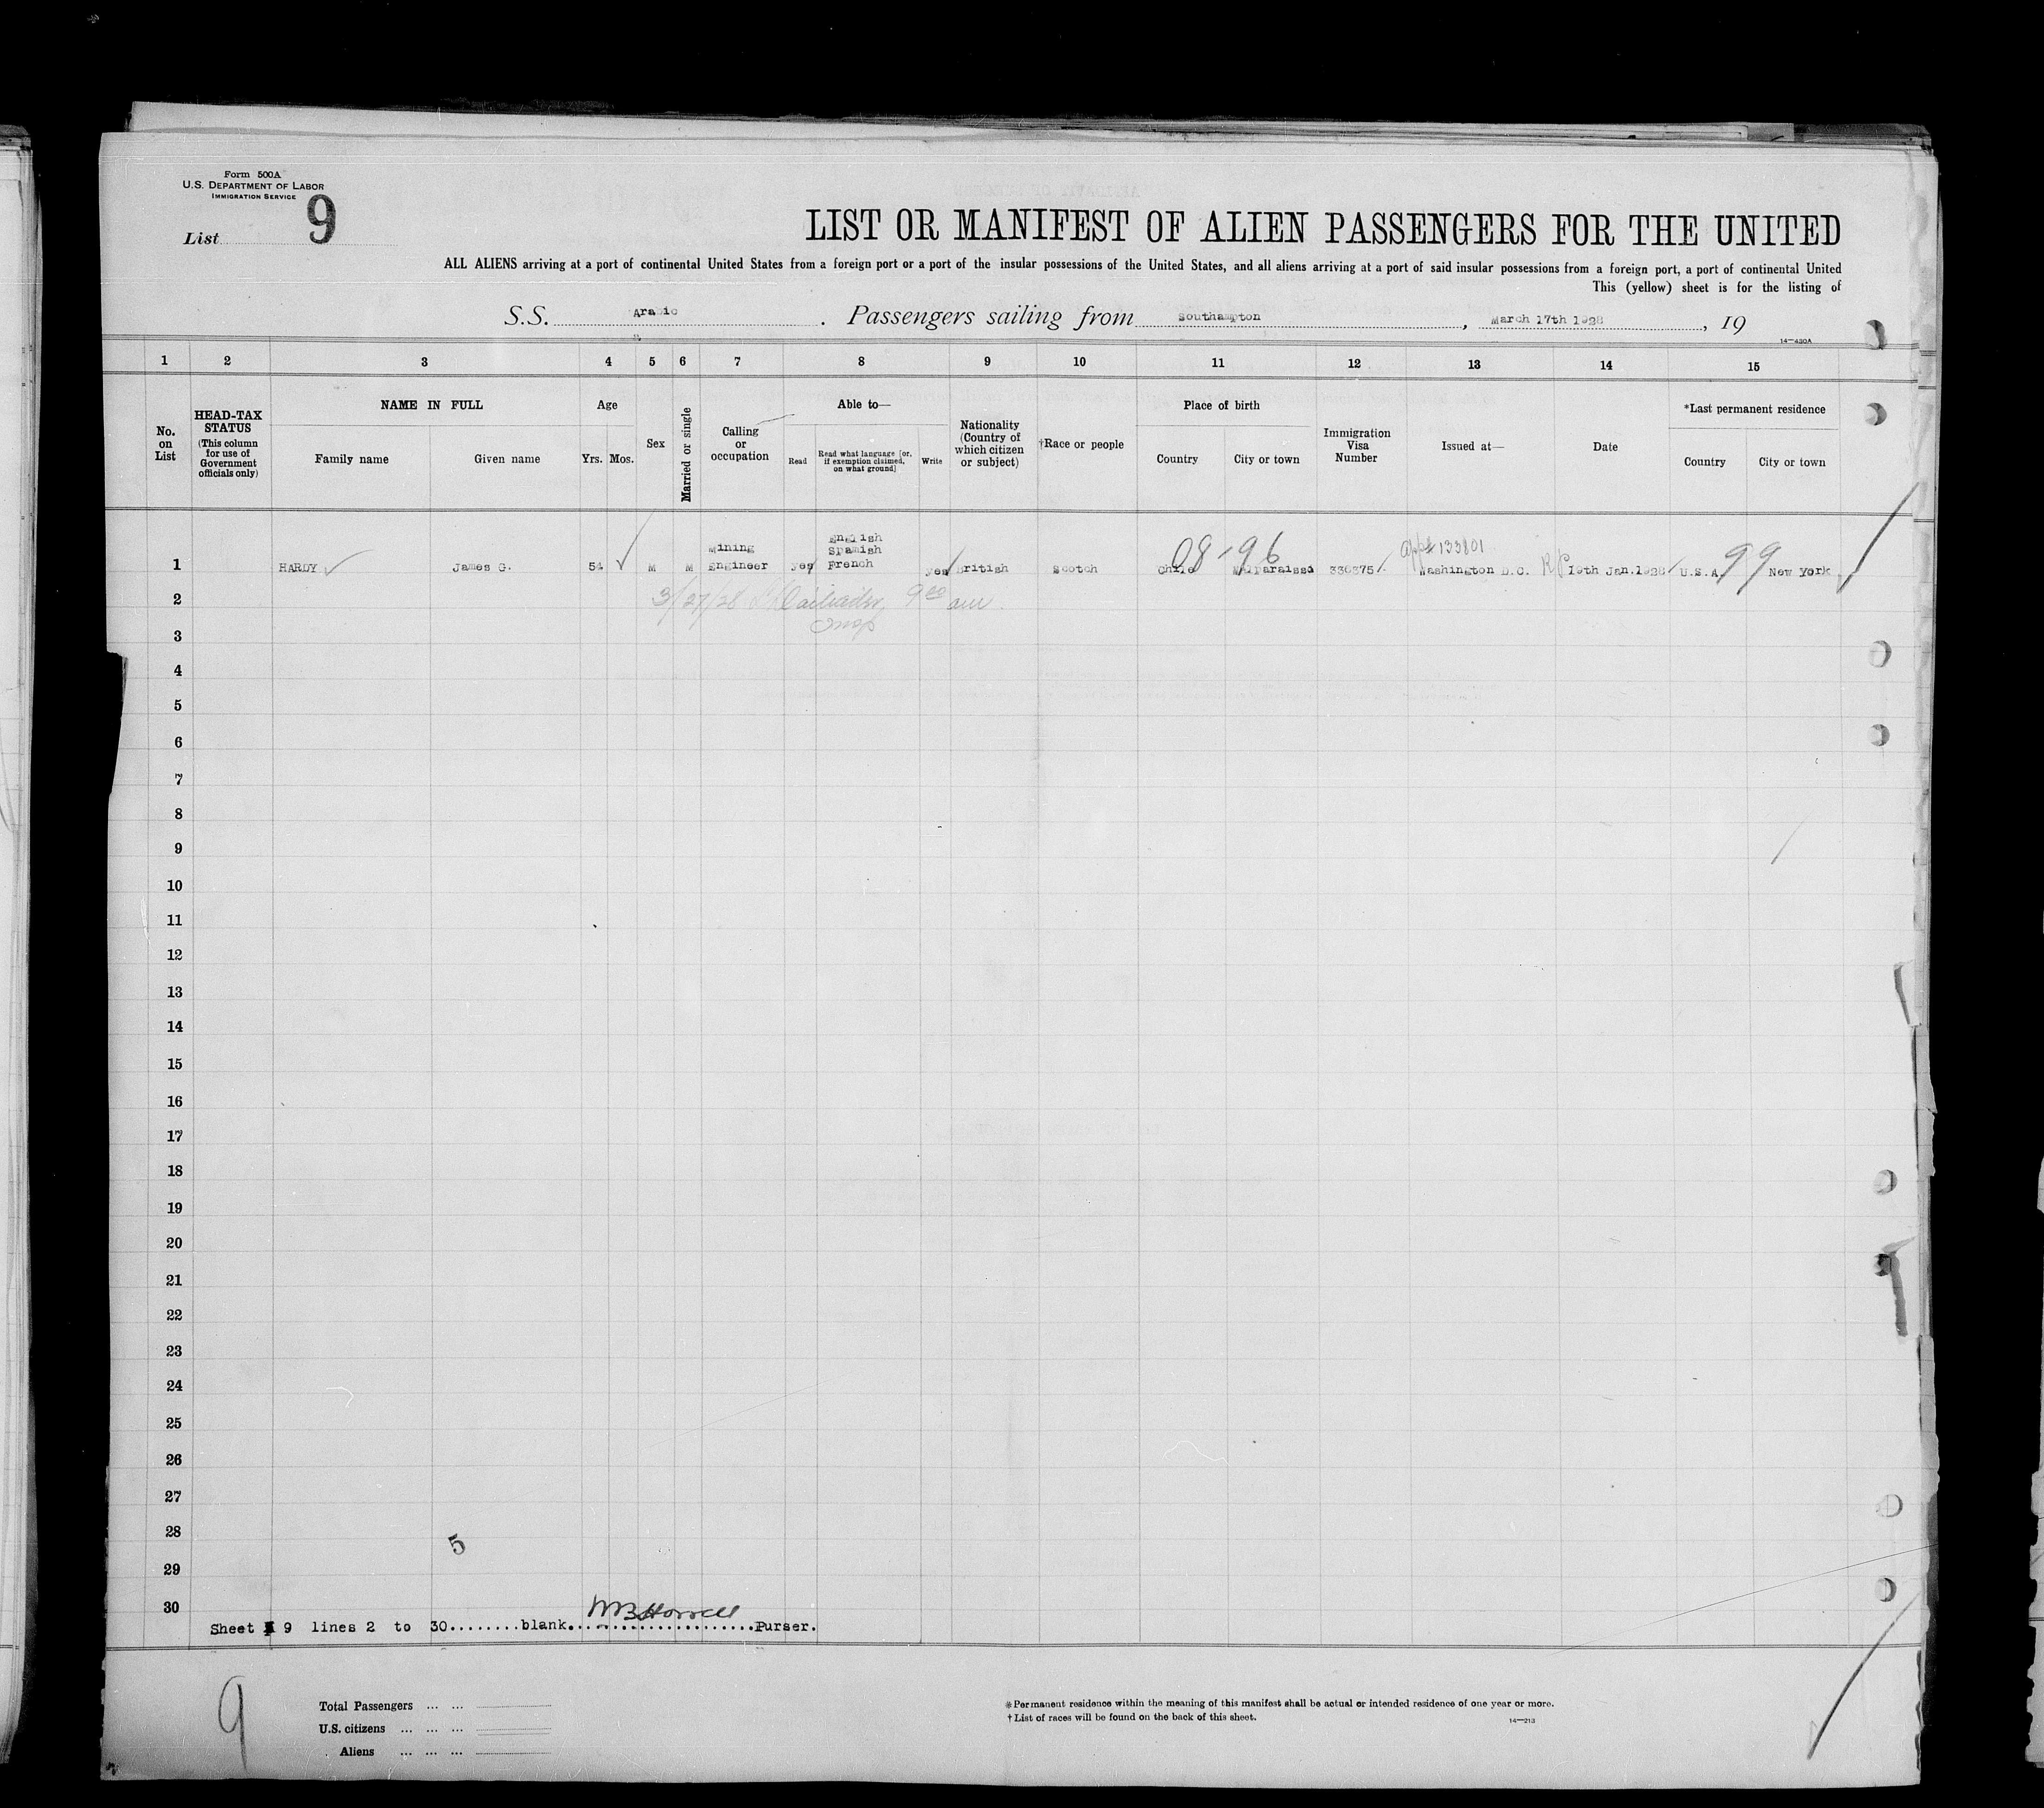 Form 500A
U.S. DEPARTMENT OF LABOR
IMMIGRATION SERVICE
List 9
LIST OR MANIFEST OF ALIEN PASSENGERS FOR THE UNITED
ALL ALIENS arriving at a port of continental United States from a foreign port or a port of the insular possessions of the United States, and all aliens arriving at a port of said insular possessions from a foreign port, a port of continental United
This (yellow) sheet is for the listing of
S.S. Arabic. Passengers sailing from Southampton, March 17th 1928, 19
14—430A
1 2 3 4 5 6 7 8 9 10 11 12 13 14 15
No. on List
HEAD-TAX STATUS (This column for use of Government officials only)
NAME IN FULL
Family name Given name
Age
Yrs. Mos.
Sex
Married or single
Calling or occupation
Able to—
Read
Read what language [or, if exemption claimed, on what ground]
Write
Nationality (Country of which citizen or subject)
†Race or people
Place of birth
Country City or town
Immigration Visa Number
Issued at—
Date
*Last permanent residence
Country City or town
1 HARDY James G. 54 M M Mining Engineer yes English Spanish French yes British Scotch Chile Valparaiso 330375 Washington D.C. RP 19th Jan.1928 U.S.A. New York
08-96
133801
99
2
3/27/28 9 00 am
3
4
5
6
7
8
9
10
11
12
13
14
15
16
17
18
19
20
21
22
23
24
25
26
27
28
5
29
30
Sheet 9 lines 2 to 30........blank.......................Purser.
9
Total Passengers ... ...
U.S. citizens ... ... ...
Aliens ... ... ...
*Permanent residence within the meaning of this manifest shall be actual or intended residence of one year or more.
†List of races will be found on the back of this sheet.
14—213